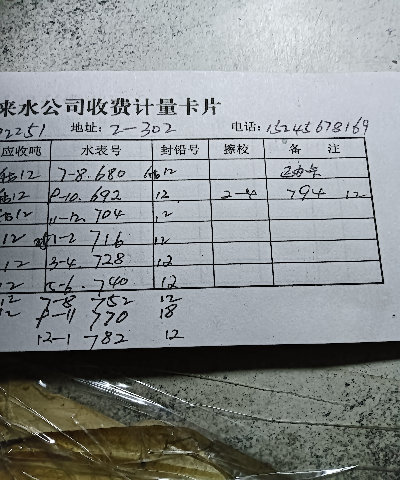 来水公司收费计量卡片
02251 地址: 2-302 电话: 15245678169
应收吨 水表号 封铅号 擦校 备 注
12 7-8.680 12
12 9-10.692 12 2-4 794 12
12 11-12.704 12
12 1-2 716 12
12 3-4.728 12
12 5-6.740 12
12 7-8 752 12
12 9-11 770 18
12-1 782 12